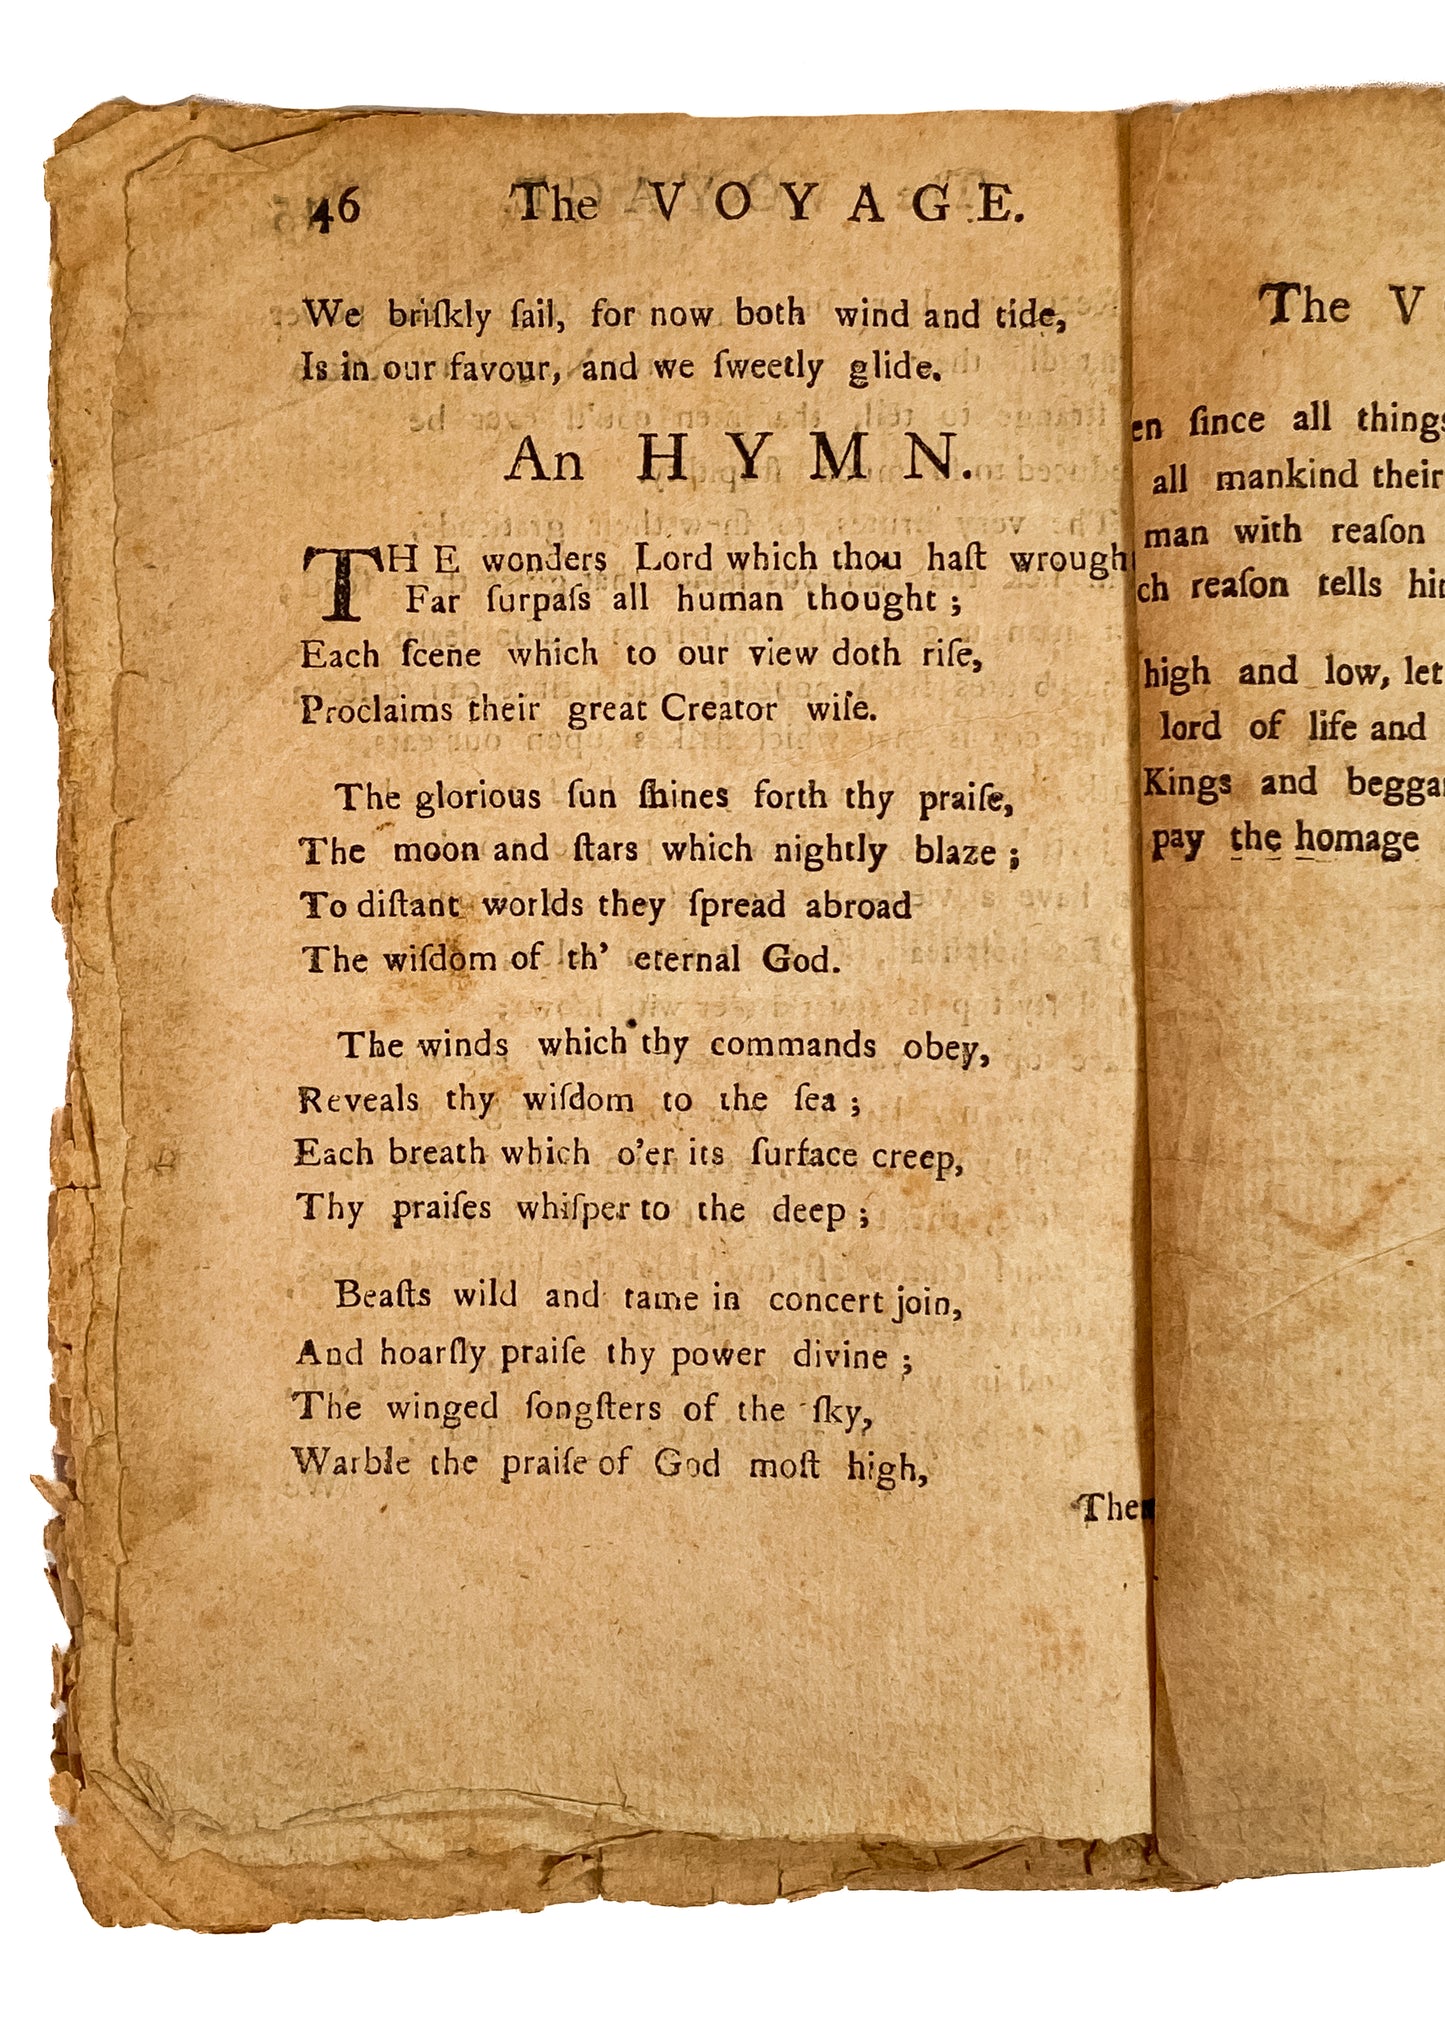 46 The VOYAGE.
We briſkly ſail, for now both wind and tide,
Is in our favour, and we ſweetly glide.
An HYMN.
THE wonders Lord which thou haſt wrough
Far ſurpaſs all human thought ;
Each ſcene which to our view doth riſe,
Proclaims their great Creator wiſe.
The glorious ſun ſhines forth thy praiſe,
The moon and ſtars which nightly blaze ;
To diſtant worlds they ſpread abroad
The wiſdom of th’ eternal God.
The winds which thy commands obey,
Reveals thy wiſdom to the ſea ;
Each breath which o’er its ſurface creep,
Thy praiſes whiſper to the deep ;
Beaſts wild and tame in concert join,
And hoarſly praiſe thy power divine ;
The winged ſongſters of the ſky,
Warble the praiſe of God moſt high,
The
The V
en ſince all things
all mankind their
man with reaſon
ch reaſon tells hi
high and low, let
lord of life and
Kings and begga
pay the homage